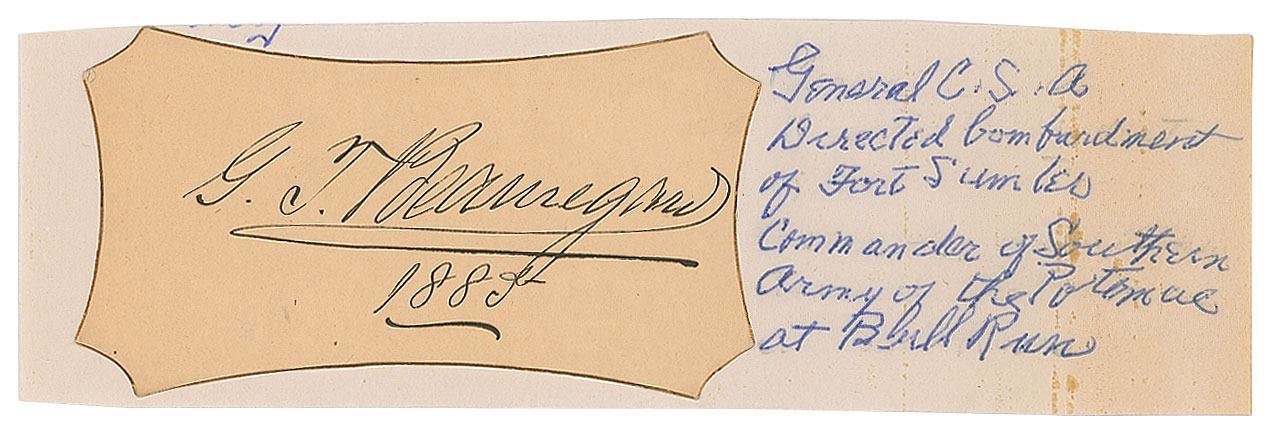 G. T. Beauregard
1885
General C. S. A
Directed bombardment
of Fort Sumter
Commander of Southern
Army of the Potomac
at Bull Run